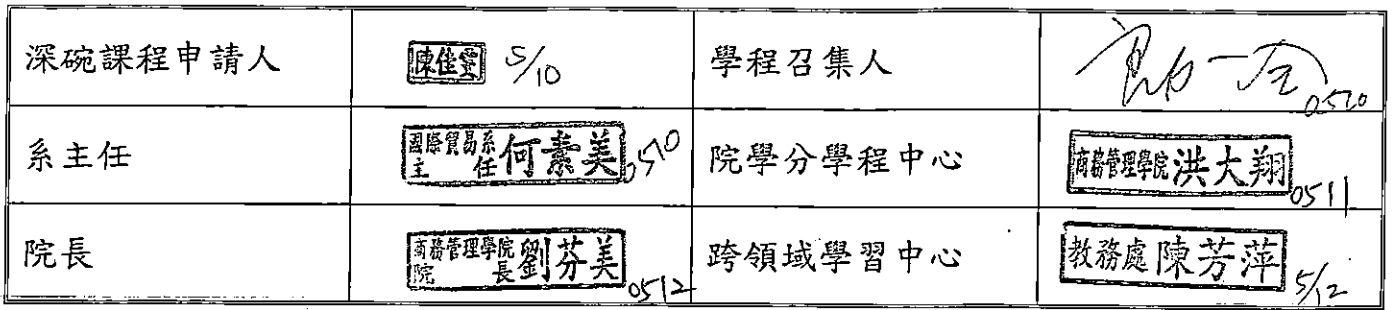 深碗課程申請人 陳佳雯 5/10 學程召集人 0510
系主任 國際貿易系主任 何素美 0510 院學分學程中心 商務管理學院 洪大翔 0511
院長 商務管理學院院長 劉芬美 0512 跨領域學習中心 教務處 陳芳萍 5/12